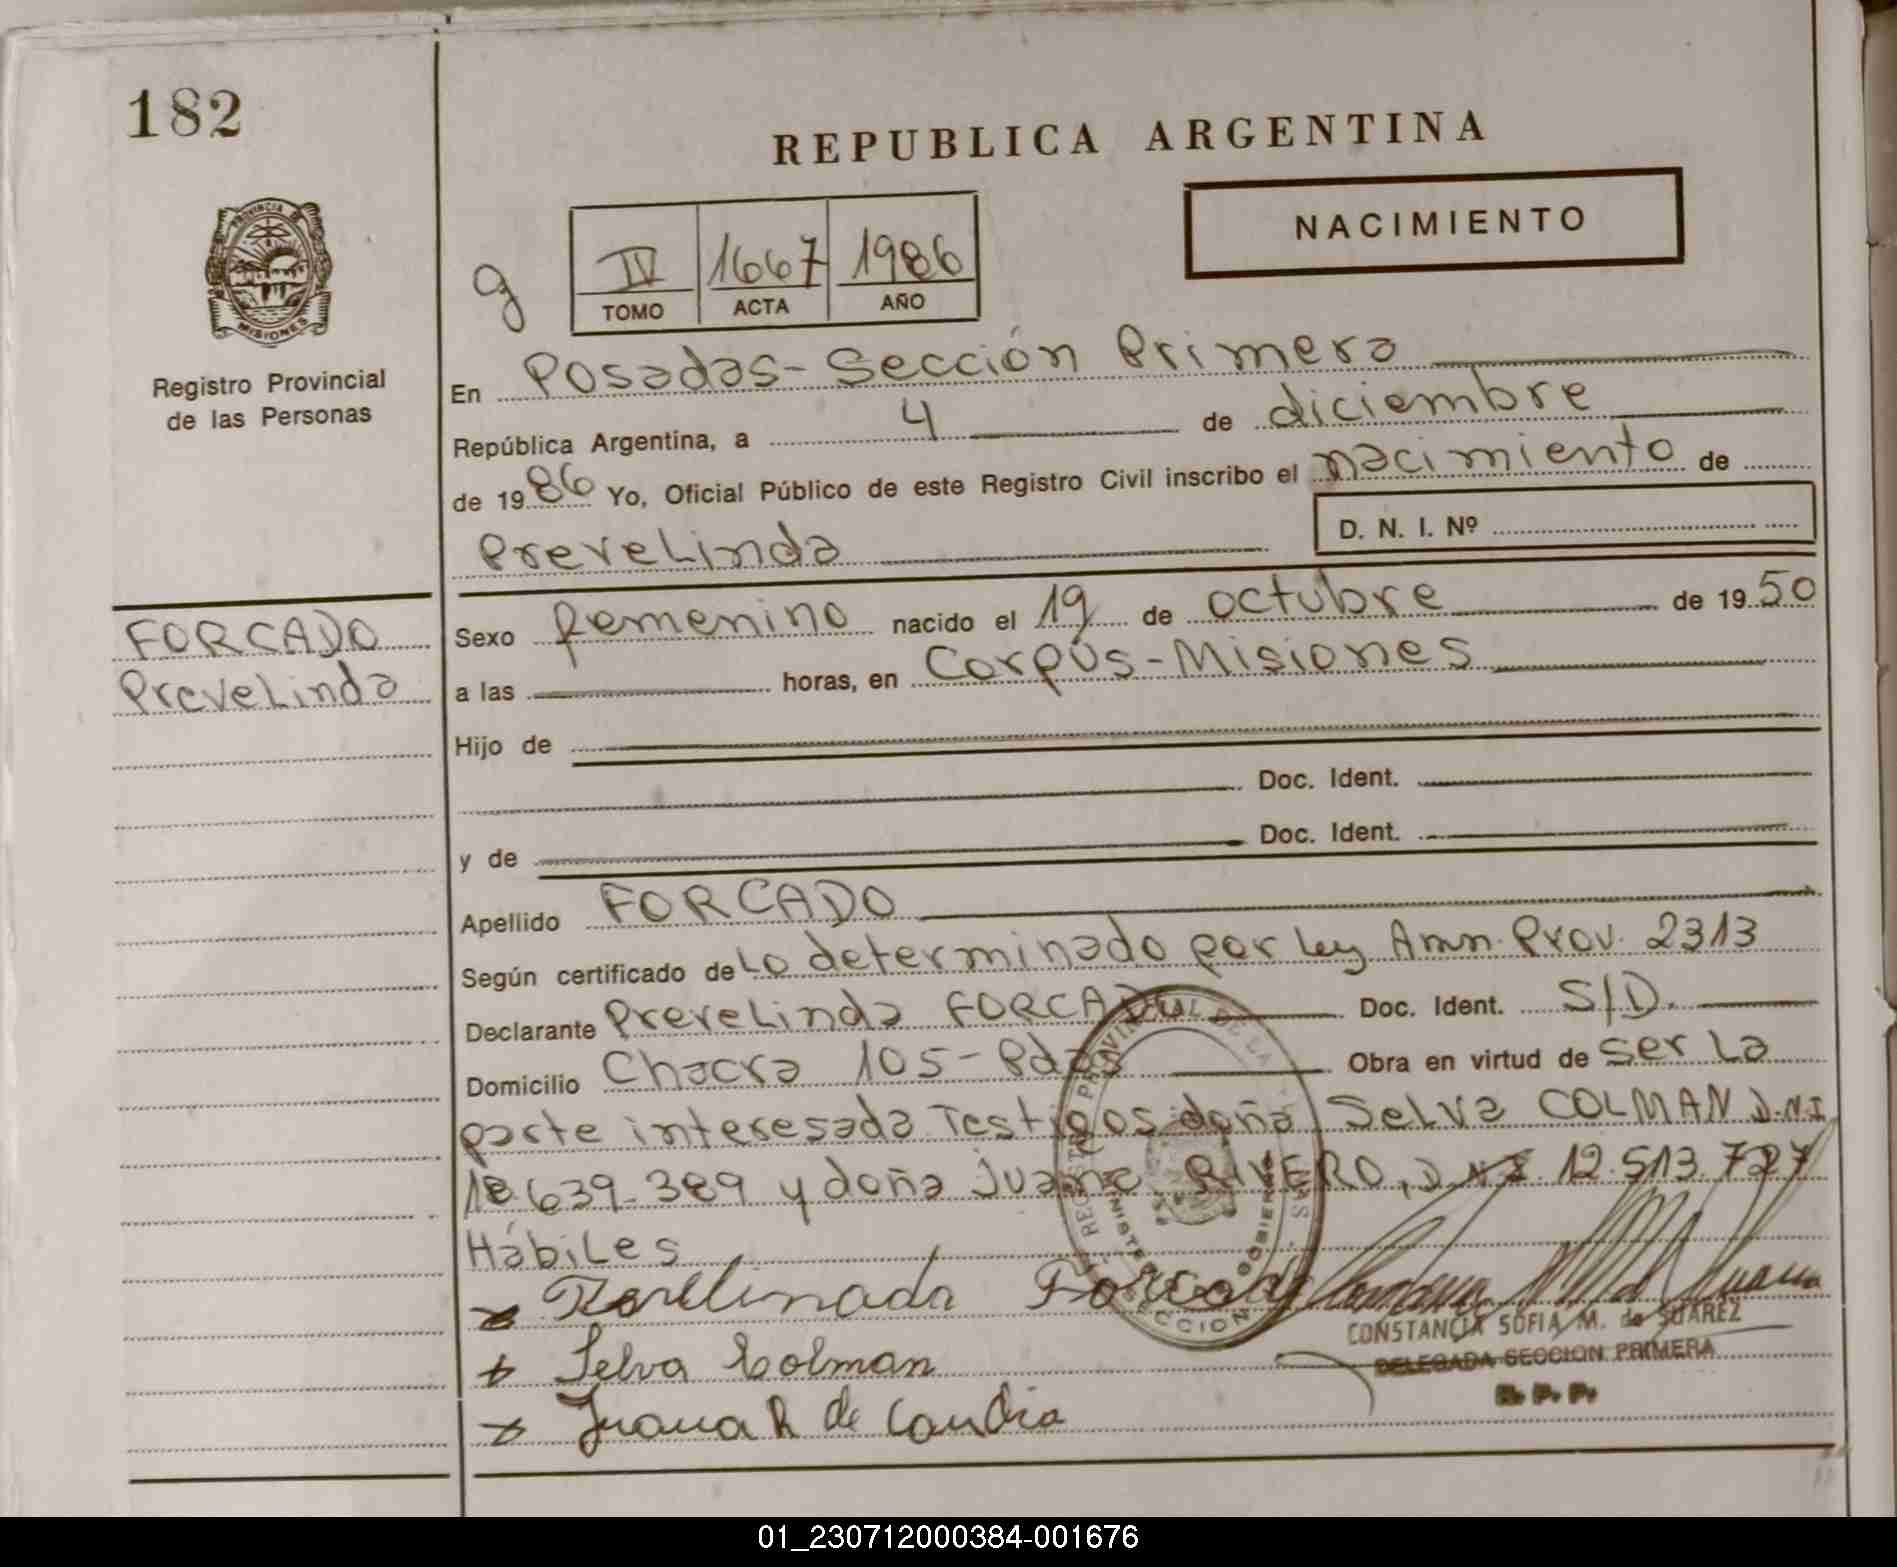 182
REPUBLICA ARGENTINA
NACIMIENTO
g
IV 1667 1986
TOMO ACTA AÑO
PROVINCIA DE
MISIONES
Registro Provincial
de las Personas
En Posadas-Sección Primera
República Argentina, a 4 de diciembre
de 1986 Yo, Oficial Público de este Registro Civil inscribo el nacimiento de
Prevelinda
D. N. I. Nº
FORCADO
Prevelinda
Sexo femenino nacido el 19 de octubre de 1950
a las horas, en Corpus-Misiones
Hijo de
Doc. Ident.
y de Doc. Ident.
Apellido FORCADO
Según certificado de Lo determinado por Ley Amn. Prov. 2313
Declarante Prevelinda FORCADO Doc. Ident. S/D.
Domicilio Chacra 105-Pdas Obra en virtud de ser La
parte interesada Testigos doña Selva COLMAN D.N.I
639-389 y doña Juana RIVERO, DNI 12.513.727
Hábiles
Forcado
Selva Colman
Juana R de Candia
CONSTANCIA SOFIA M. de SUAREZ
DELEGADA SECCION PRIMERA
R. P. P.
01_230712000384-001676